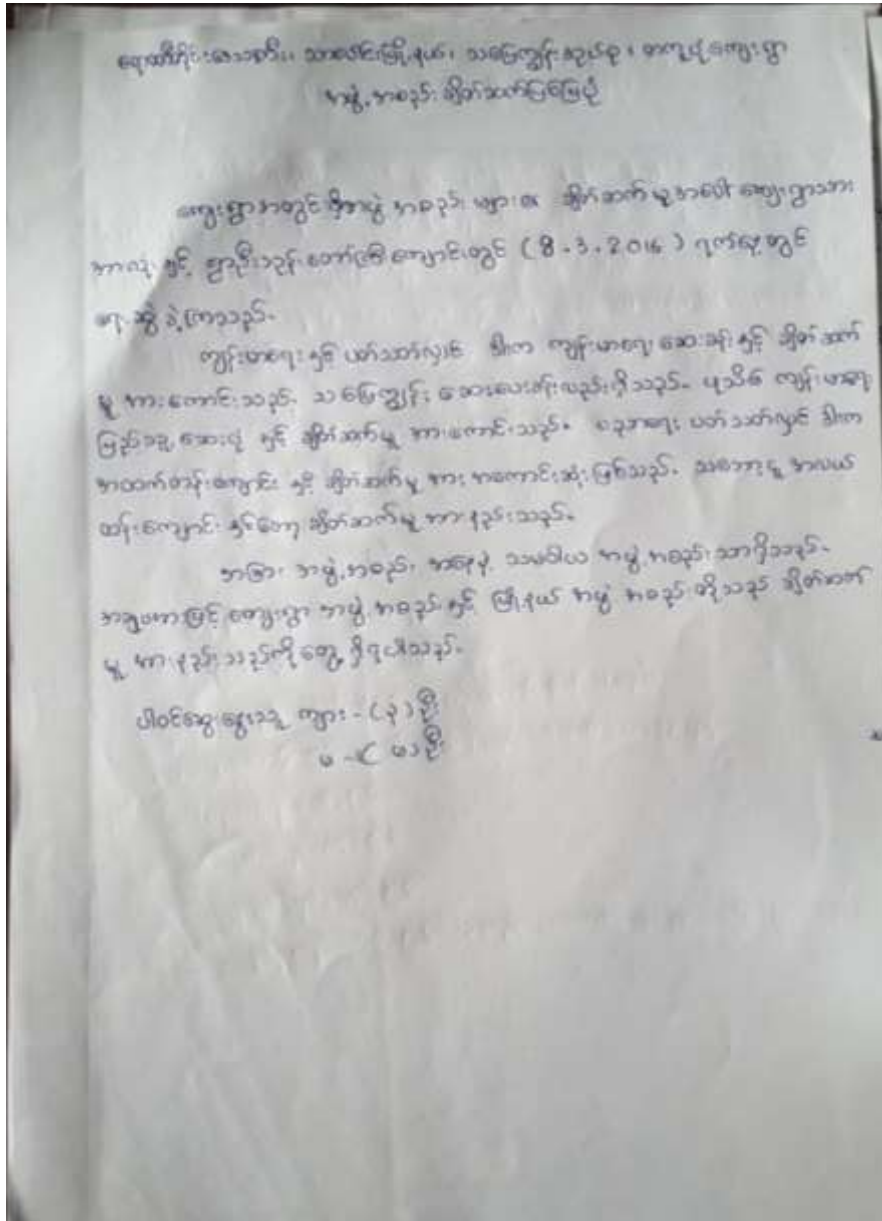 ဧရာဝတီတိုင်းဒေသကြီး၊ သာပေါင်းမြို့နယ်၊ သမြေကျွန်းအုပ်စု၊ ကျေးရွာ
အဖွဲ့အစည်း ချိတ်ဆက်ပြမြေပုံ
ကျေးရွာအတွင်းရှိအဖွဲ့အစည်းများ၏ ချိတ်ဆက်မှုအပေါ် ကျေးရွာသား
အားလုံးနှင့် ရွာဦးဘုန်းတော်ကြီးကျောင်းတွင် (8.3.2016) ရက်နေ့တွင်
ရေးဆွဲခဲ့ကြသည်.
ကျန်းမာရေးနှင့်ပတ်သတ်လျှင် ဒါးက ကျန်းမာရေးဆေးခန်းနှင့် ချိတ်ဆက်
မှု အားကောင်းသည်. သမြေကျွန်း ဆေးပေးခန်းလည်းရှိသည်. ပုသိမ် ကျန်းမာရေး
ပြည်သူ့ဆေးရုံ နှင့် ချိတ်ဆက်မှု အားကောင်းသည်. ပညာရေး ပတ်သတ်လျှင် ဒါးက
အထက်တန်းကျောင်း နှင့် ချိတ်ဆက်မှု အား အကောင်းဆုံးဖြစ်သည်. အလယ်
တန်းကျောင်း နှင့်တော့ ချိတ်ဆက်မှု အားနည်းသည်.
အခြား အဖွဲ့အစည်း အနေနဲ့ သမဝါယမ အဖွဲ့အစည်းသာရှိသည်.
ကျေးရွာ အဖွဲ့အစည်းနှင့် မြို့နယ် အဖွဲ့အစည်းတို့သည် ချိတ်ဆတ်
မှု အားနည်းသည်ကိုတွေ့ရှိရပါသည်.
ပါဝင်ဆွေးနွေးသူ ကျား - (၃) ဦး
မ - ( ) ဦး